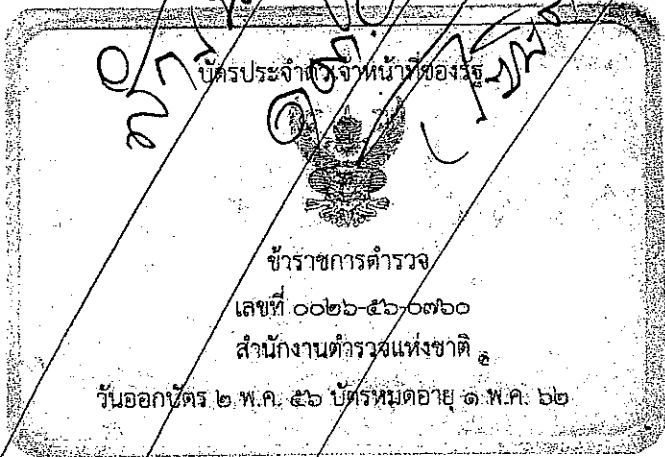 บัตรประจำตัวเจ้าหน้าที่ของรัฐ
ข้าราชการตำรวจ
เลขที่ ๐๐๒๖-๕๖-๐๗๖๐
สำนักงานตำรวจแห่งชาติ
วันออกบัตร ๒ พ.ค. ๕๖ บัตรหมดอายุ ๑ พ.ค. ๖๒